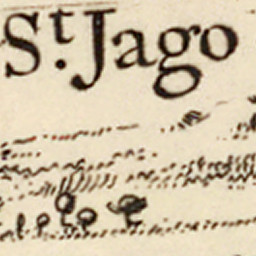 St. Jago